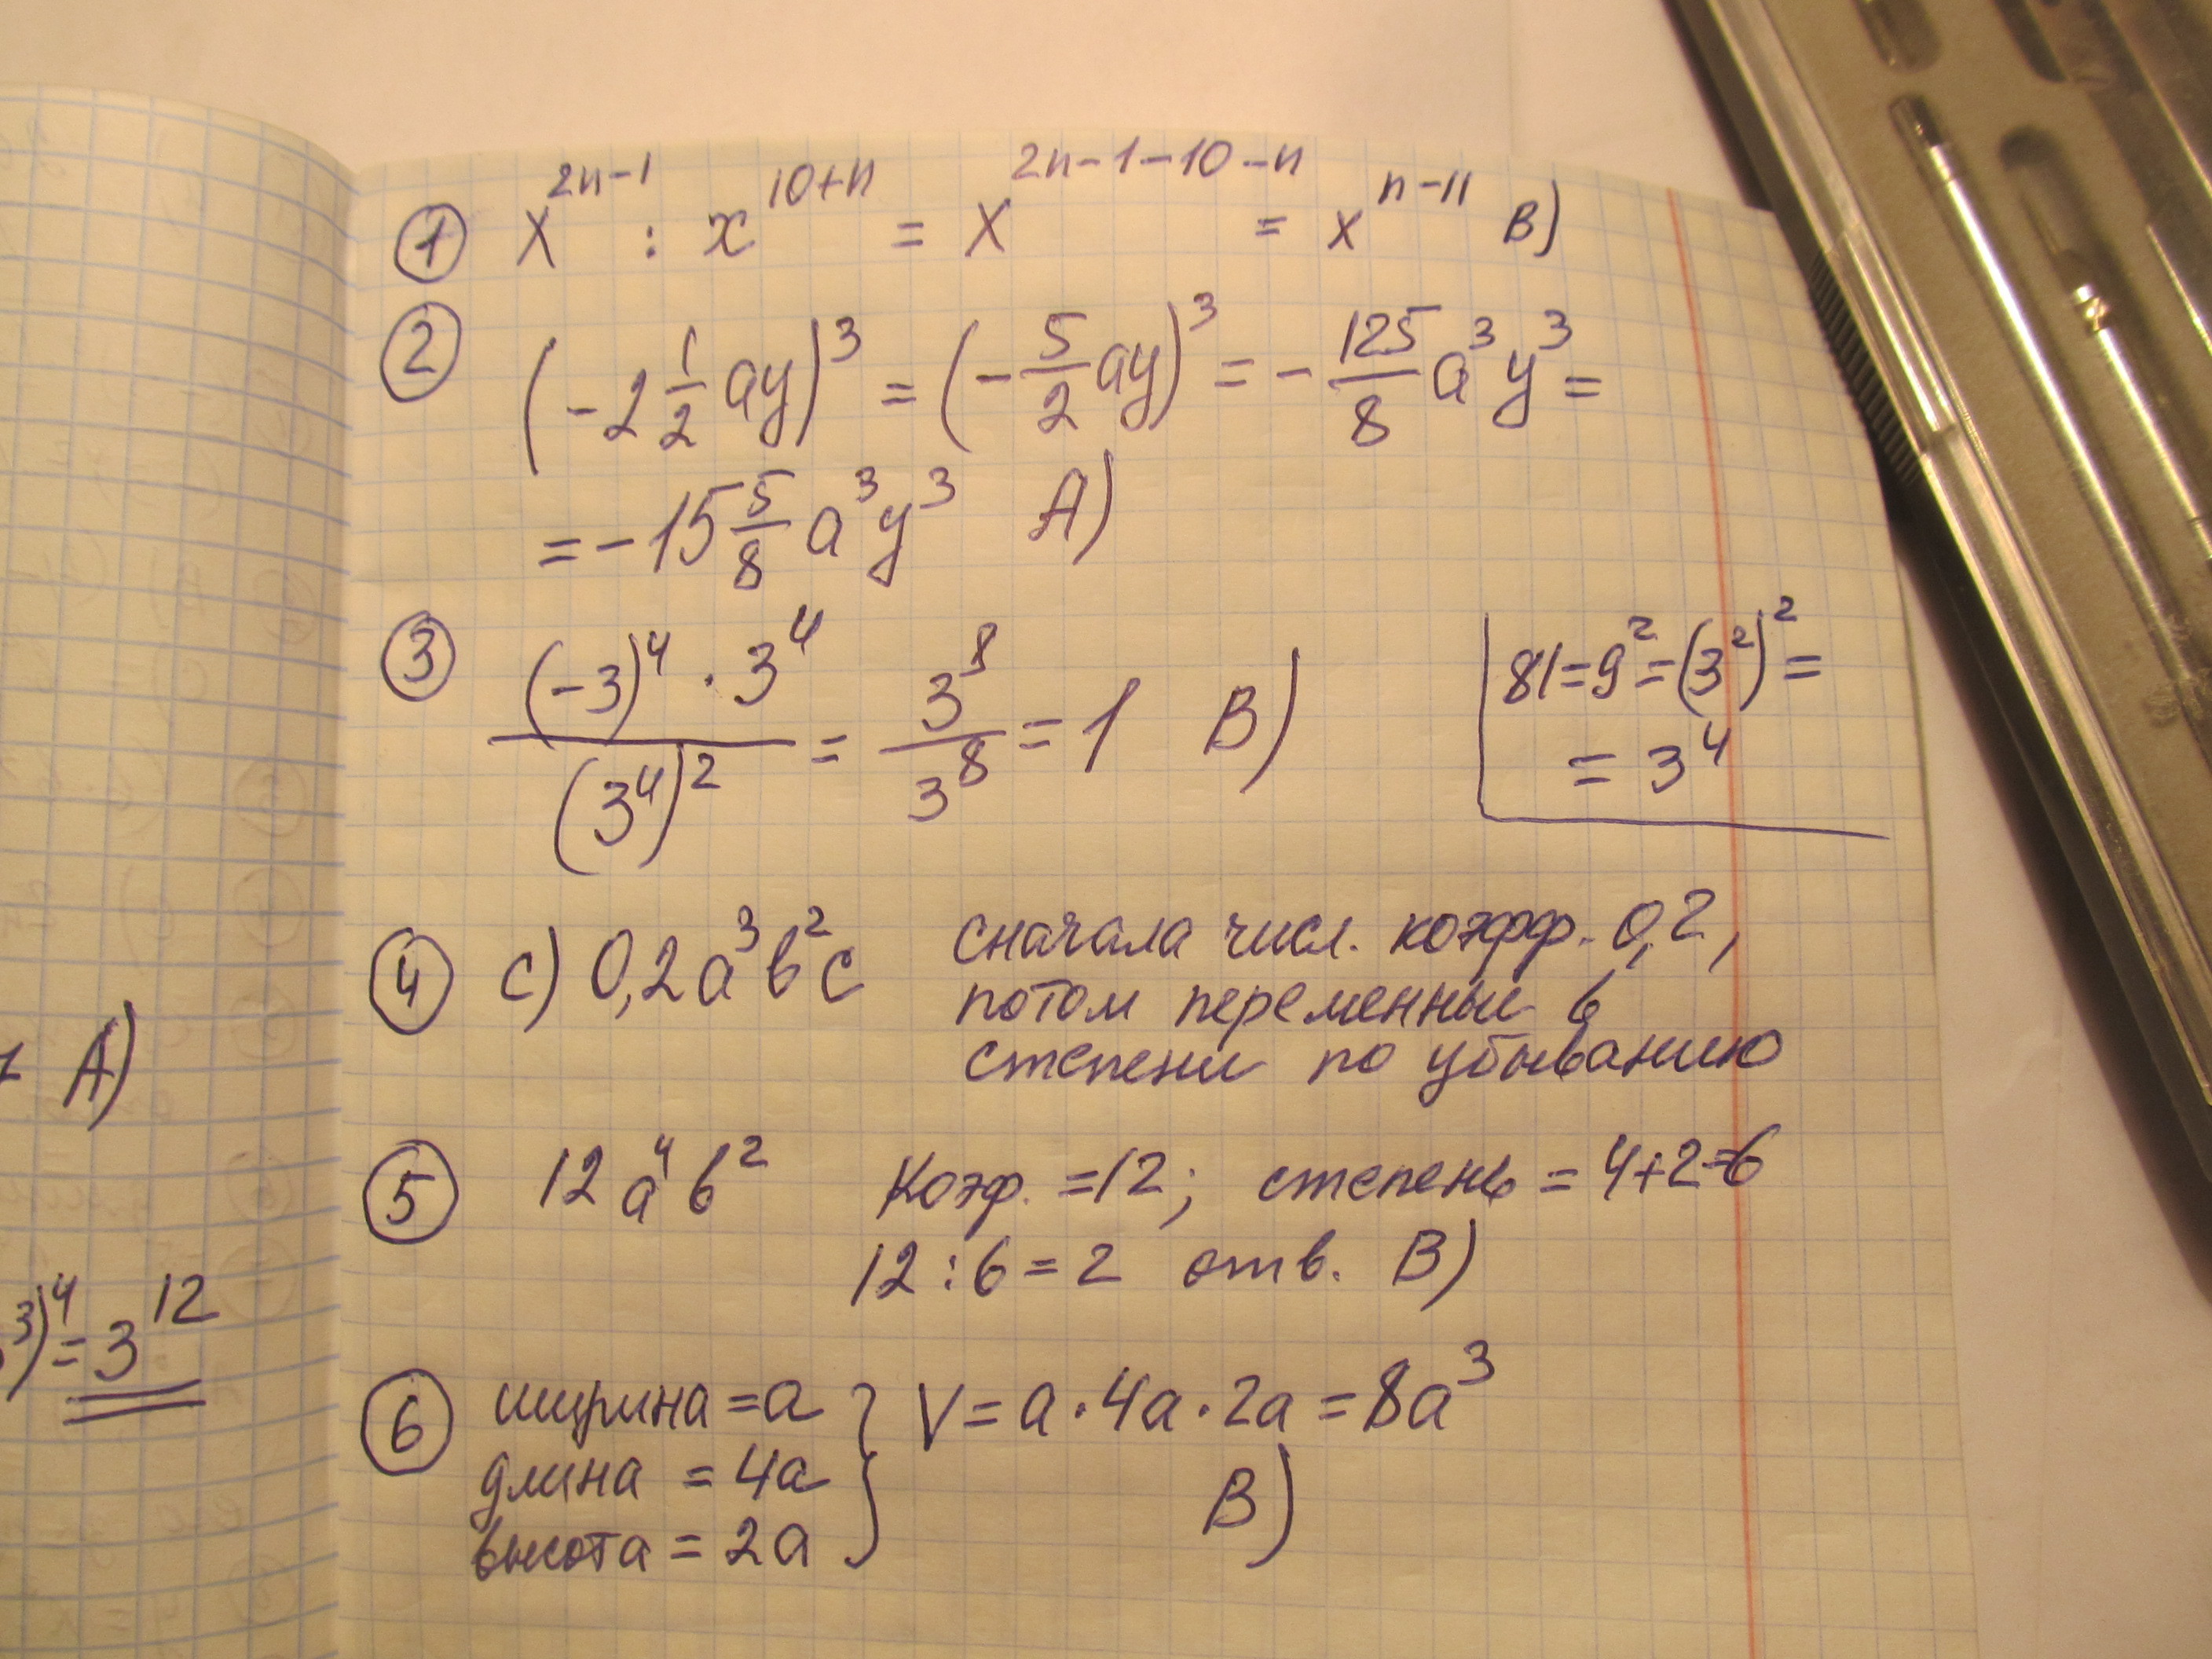 ① x^{2n-1} : x^{10+n} = x^{2n-1-10-n} = x^{n-11} В)
② (-2 1/2 ay)^3 = (-5/2 ay)^3 = -125/8 a^3 y^3 =
= -15 5/8 a^3 y^3 А)
③ (-3)^4 · 3^4 / (3^4)^2 = 3^8/3^8 = 1 В)
81=9^2=(3^2)^2=
= 3^4
④ с) 0,2a^3b^2c сначала числ. коэфф. 0,2,
потом переменные в
степени по убыванию
⑤ 12a^4b^2 Коэф. =12; степень = 4+2=6
12 : 6 = 2 отв. В)
⑥ ширина = a } V = a · 4a · 2a = 8a^3
длина = 4a
В)
высота = 2a
А)
3)^4 = 3^12